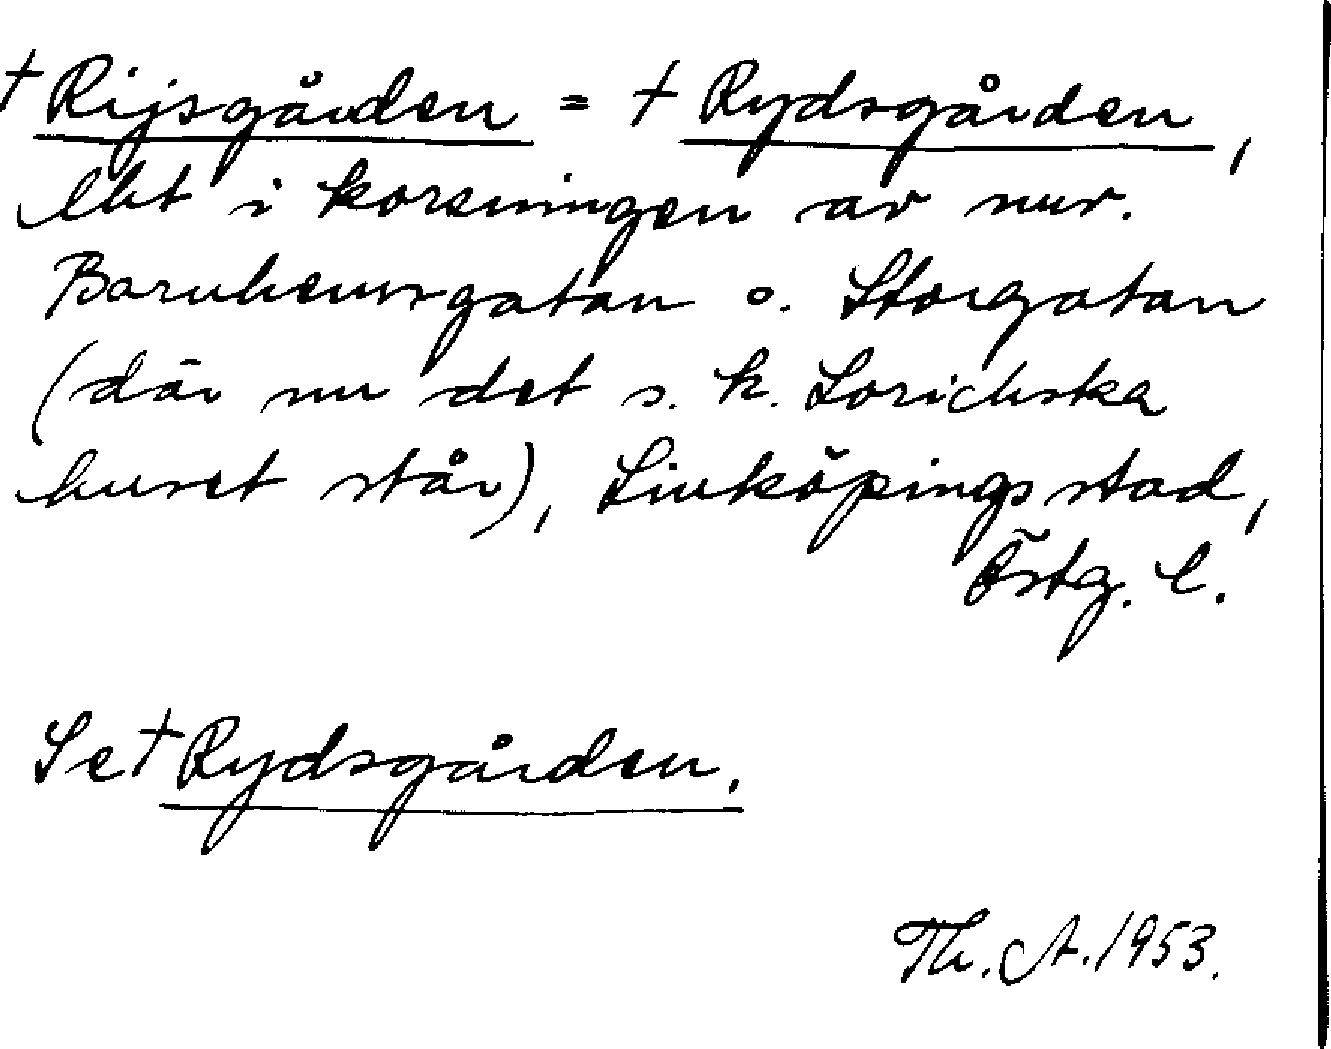 † Rijsgården = † Rydsgården,
i korsningen av nuv.
Barnhemsgatan o. Storgatan
(där nu det s. k. Lorichska
huset står), Linköpings stad,
Östg. l.
Se † Rydsgården.
Th. A. 1953.